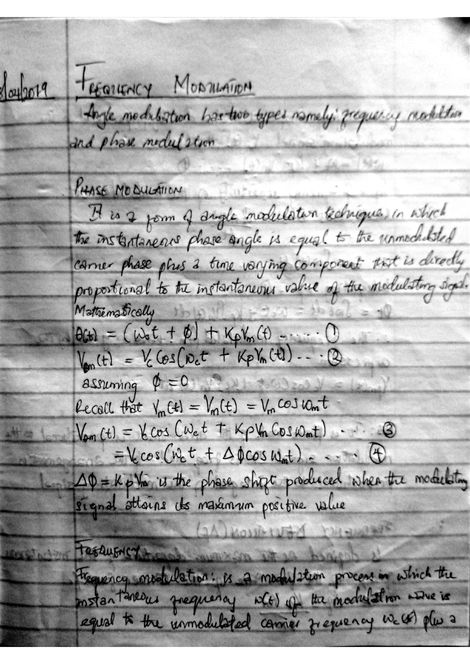 FREQUENCY MODULATION
Angle modulation has two types namely: frequency modulation
and phase modulation
PHASE MODULATION
It is a form of angle modulation technique, in which
the instantaneous phase angle is equal to the unmodulated
carrier phase plus a time varying component that is directly
proportional to the instantaneous value of the modulating signal.
Mathematically
θ(t) = [Wct + ϕ] + KpVm(t) ----- ①
Vpm(t) = Vc Cos(Wct + KpVm(t)) --- ②
assuming ϕ = 0
Recall that Vm(t) = Vm(t) = Vm Cos Wmt
Vpm(t) = Vc cos (Wct + KpVm Cos Wmt) ... ③
= Vc cos (Wct + Δϕ cos Wmt) ..... ④
Δϕ = KpVm is the phase shift produced when the modulating
signal attains its maximum positive value
FREQUENCY
Frequency modulation: is a modulation process in which the
instantaneous frequency w(t) of the modulation wave is
equal to the unmodulated carrier frequency Wc(t) plus a